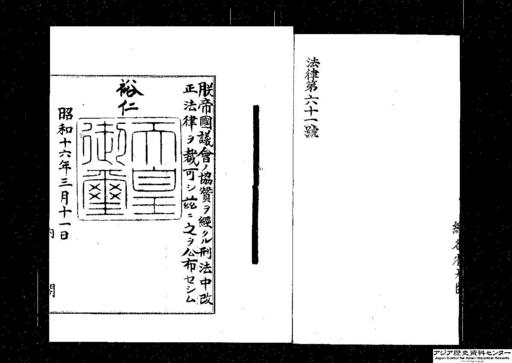 法律第六十一號
朕帝國議會ノ協贊ヲ經タル刑法中改
正法律ヲ裁可シ茲ニ之ヲ公布セシム
裕仁
天皇
御璽
昭和十六年三月十一日
内閣
アジア歴史資料センター
Japan Center for Asian Historical Records